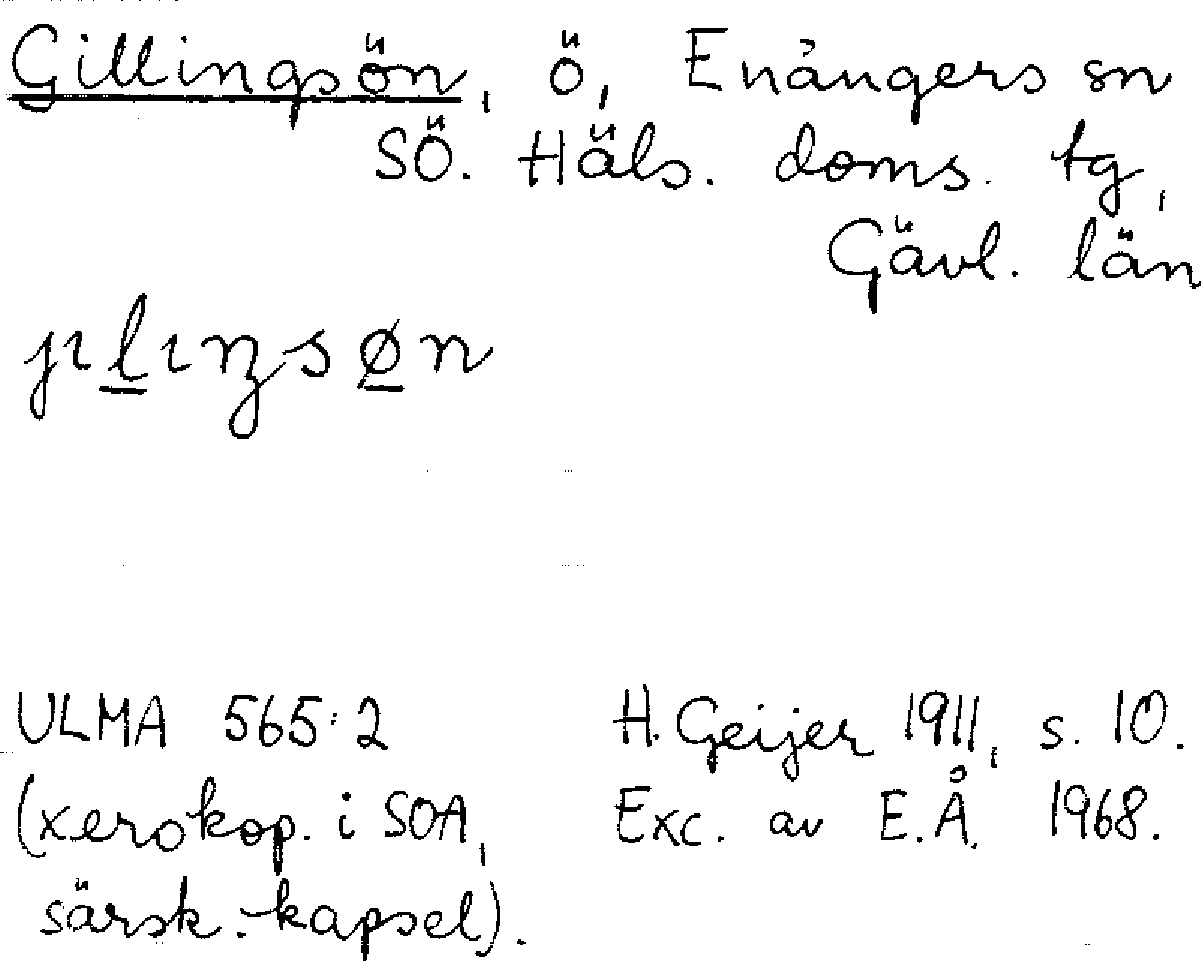 Gillingsön, ö, Enångers sn
SÖ. Häls. doms. tg,
Gävl. län
ȷıl̲ıŋsø̲n
ULMA 565:2
(xerokop. i SOA,
särsk. kapsel).
H. Geijer 1911, s. 10.
Exc. av E.Å. 1968.